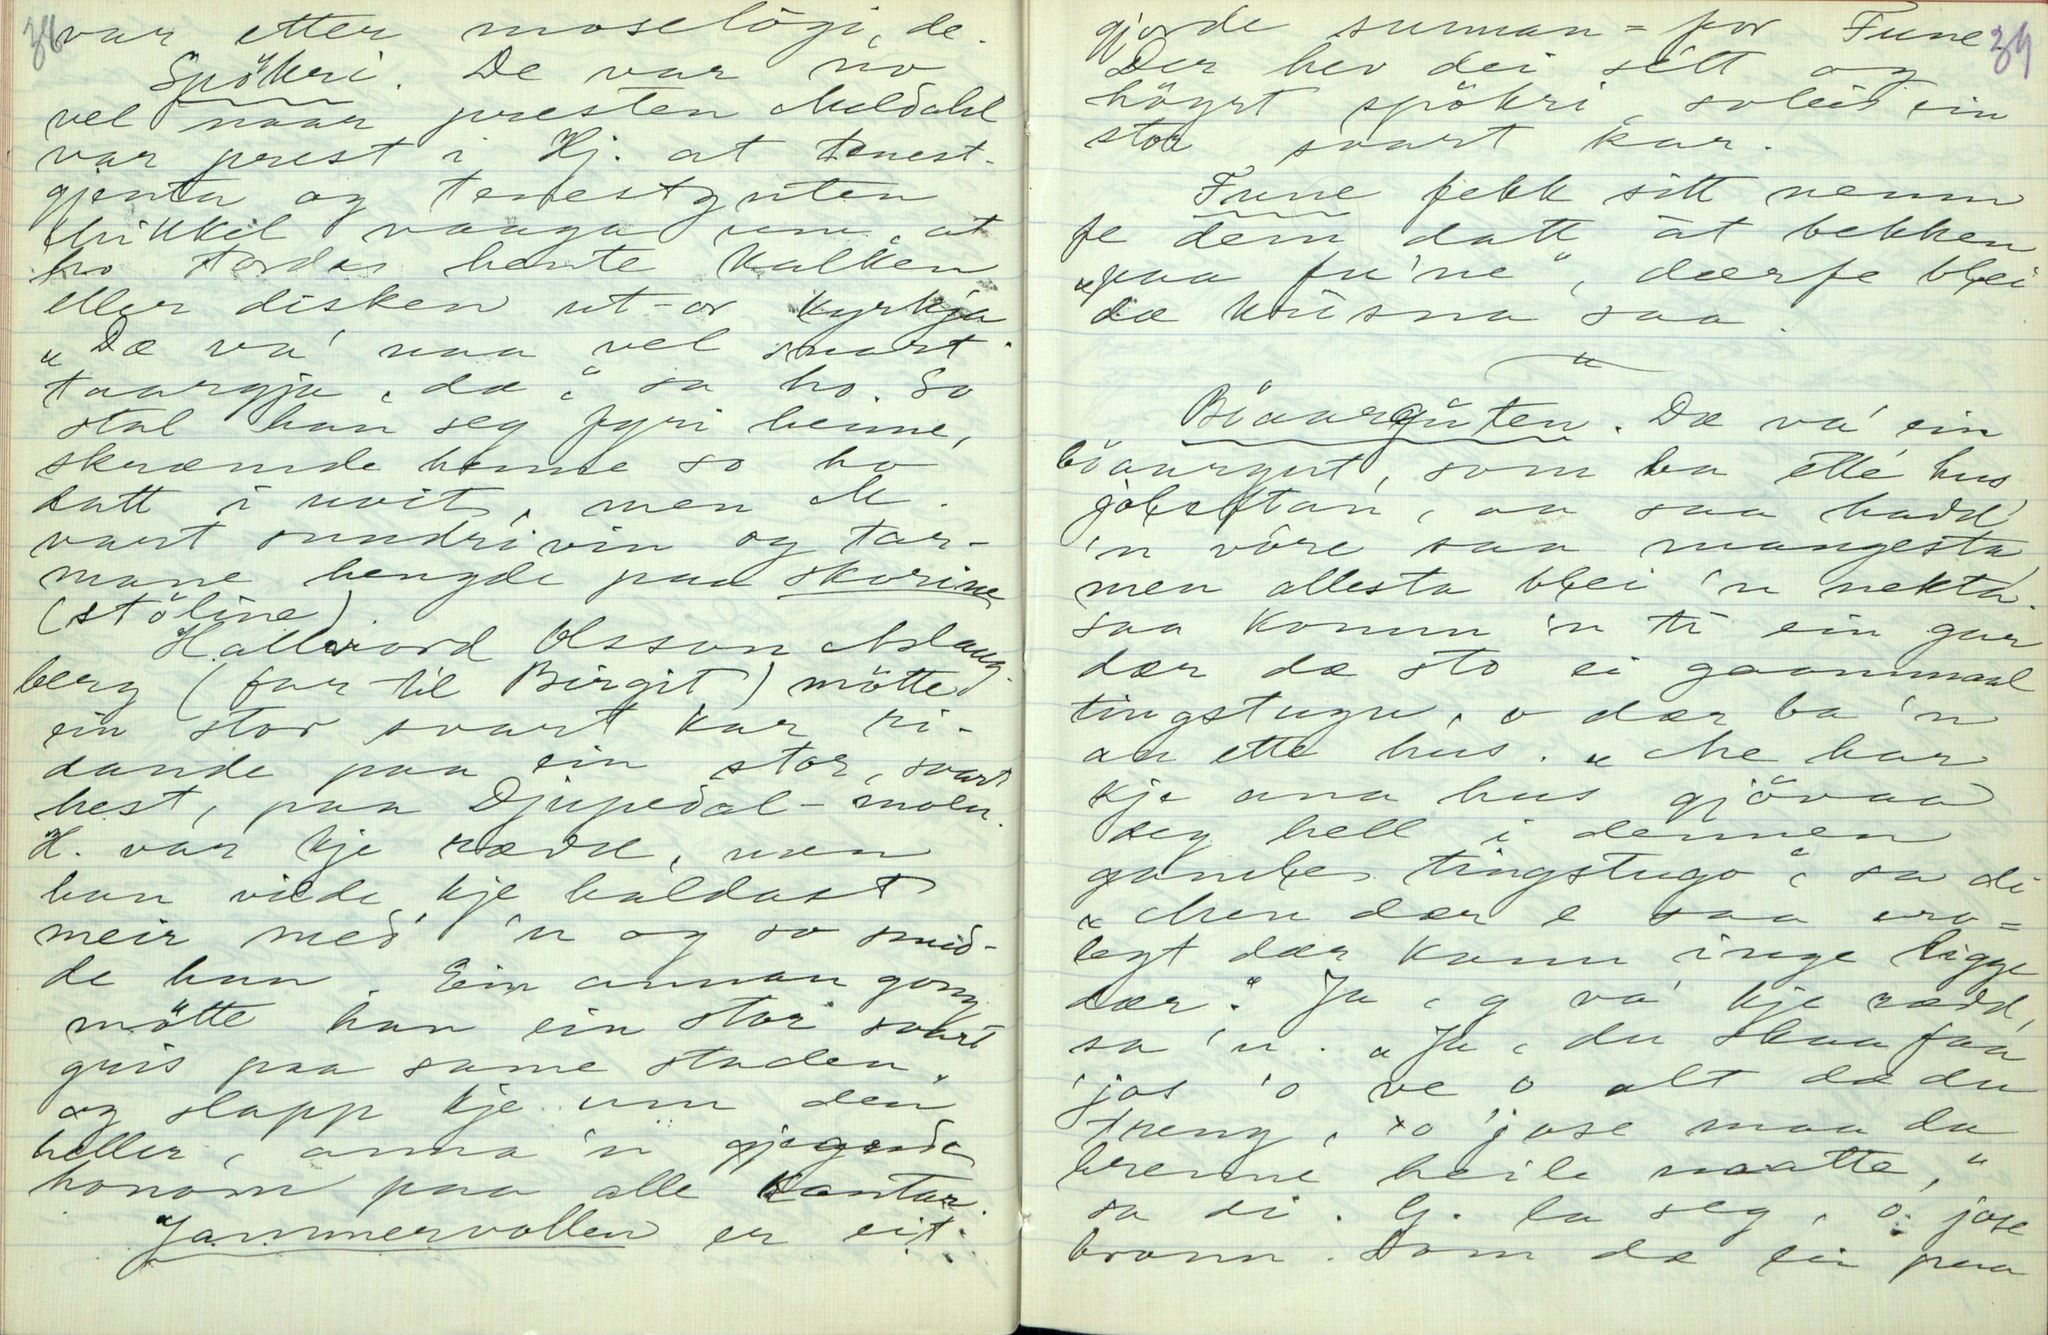 36
var etter moselögi, de.
Spökri. De var no
vel naar presten Meldahl
var prest i Hj. at tenest-
gjenta og tenestguten
Mikkil vaaga um, at
ho tordes hente kalken
eller disken ut-or kyrkja.
"Dæ va' naa vel snart
taargja, dæ," sa ho. So
stal han seg fyri henne,
skræmde henne so ho
datt i uvit, men M.
vart sundrivin og tar-
mane hengde paa skorine
(stöline)
Hallvord Olsson Aslaug-
berg (far til Birgit) mötte
ein stor svart kar ri-
dande paa ein stor, svart
hest, paa Djupedal-moen.
H. var kje rædd, men
han vilde kje haldast
meir med 'n og so smid-
de han. Ein annan gong
mötte han ein stor svart
gris paa same staden,
og slapp kje um den
heller, anna 'n gjegnde
honom paa alle kantar.
Jammervollen er eit
34
gjorde suman-for Fune
Der hev dei sètt og
höyrt spökri, soleis ein
stor svart kar.
Fune fekk sitt nemn
fe dem datt åt bekken
"paa fu'ne", dærfe blei
dæ kriisna saa.
"
Böaarguten. Dæ va' ein
böaargut, som ba ette hus
jolæftan, aa saa hadd'
'n vöre saa mangesta,
men allesta blei 'n nekta.
Saa komm 'n ti ein gar
dær dæ sto ei gaammaal
tingstugu, o dær ba 'n
au ette hus. "Me har
kje ana hus gjövaa
seg hell i dennen
gamle tingstugo", sa di
"Men dær e saa uro=
legt dær kann inge ligge
dær." Ja, g va' kje rædd,
sa 'n. "Ja, du skaa faa
'jos 'o ve o alt dæ du
treng, o 'jose maa du
brenne heile naatte,"
sa di. G. la seg, o jose
brann. Som dæ lei paa